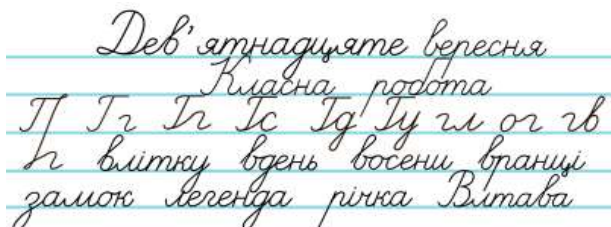 Дев'ятнадцяте вересня
Класна робота
П Гг Іг Іс Ід Іу гл ог гв
Іг влітку вдень восени вранці
замок легенда річка Влтава